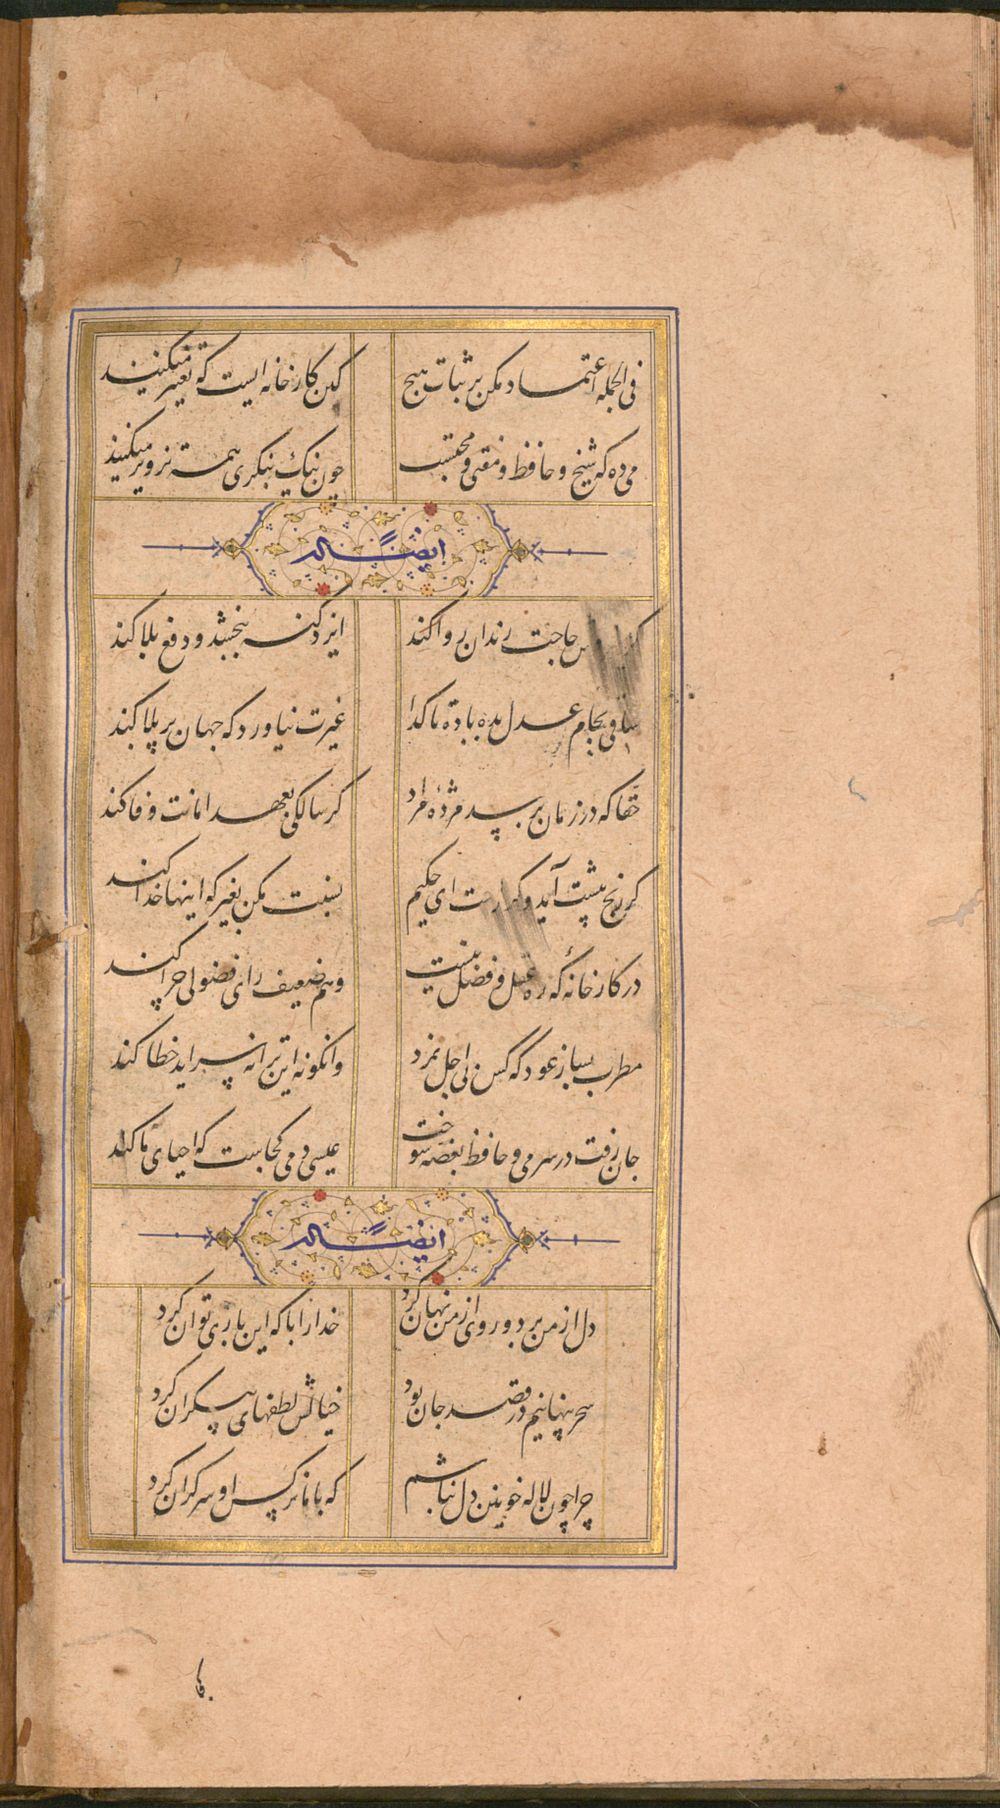 فی الجمله اعتماد مکن بر ثبات هیچ کین کارخانه ایست که تغییر میکنند
می ده که شیخ و حافظ و مفتی و محتسب چون نیک بنکری همه تزویر میکنند
ایضاً له
حاجت رندان روا کند ایزد کنه ببخشد و دفع بلا کند
ساقی بجام عدل بده باده تا کدا غیرت نیاورد که جهان پر بلا کند
حقا که در زمان برسد مژدهٔ مراد کر سالکی بعهد امانت وفا کند
کر رنج پیشت آید و کر راحت ای حکیم نسبت مکن بغیر که اینها خدا کند
در کارخانهٔ که ره عقل و فضل نیست وهم ضعیف رای فضولی چرا کند
مطرب بساز عود که کس بی اجل نمرد وانکو نه این ترانه سراید خطا کند
جان رفت در سر می و حافظ بغصه سوخت عیسی دمی کجاست که احیای ما کند
ایضاً له
دل از من برد و روی از من نهان کرد خدا را با که این بازی توان کرد
سحر تنهائیم در قصد جان بود خیالش لطفهای بیکران کرد
چرا چون لاله خونین دل نباشم که با ما نرکس او سرکران کرد